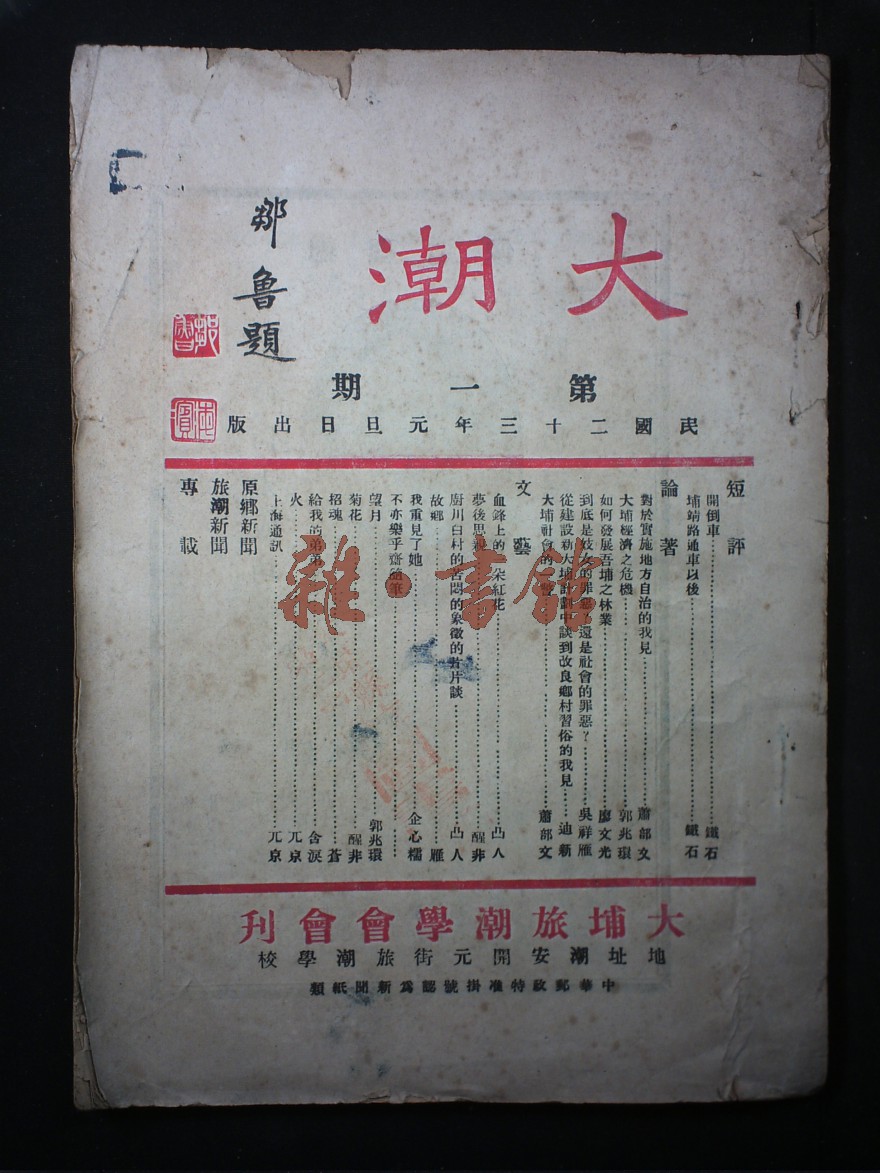 大潮
鄒魯題
鄒魯
海濱
第一期
民國二十三年元旦日出版
短評
開倒車……鐵石
埔靖路通車以後……鐵石
論著
對於實施地方自治的我見……蕭部文
大埔經濟之危機……郭兆環
如何發展吾埔之林業……廖文光
到底是妓女的罪惡?還是社會的罪惡?……吳祥雁
從建設新大埔計劃中談到改良鄉村習俗的我見……迪新
大埔社會的……蕭部文
文藝
血鋒上的一朵紅花……凸人
夢後思親……醒非
廚川白村的苦悶的象徵的片談……凸人
故鄉……雁
我重見了她……企心糯
不亦樂乎齋隨筆……
望月……郭兆環
菊花……醒非
招魂……蒼
給我的弟弟……含淚
火……兀京
上海通訊……兀京
原鄉新聞
旅潮新聞
專載
大埔旅潮學會會刊
地址潮安開元街旅潮學校
中華郵政特准掛號認爲新聞紙類
雜·書館